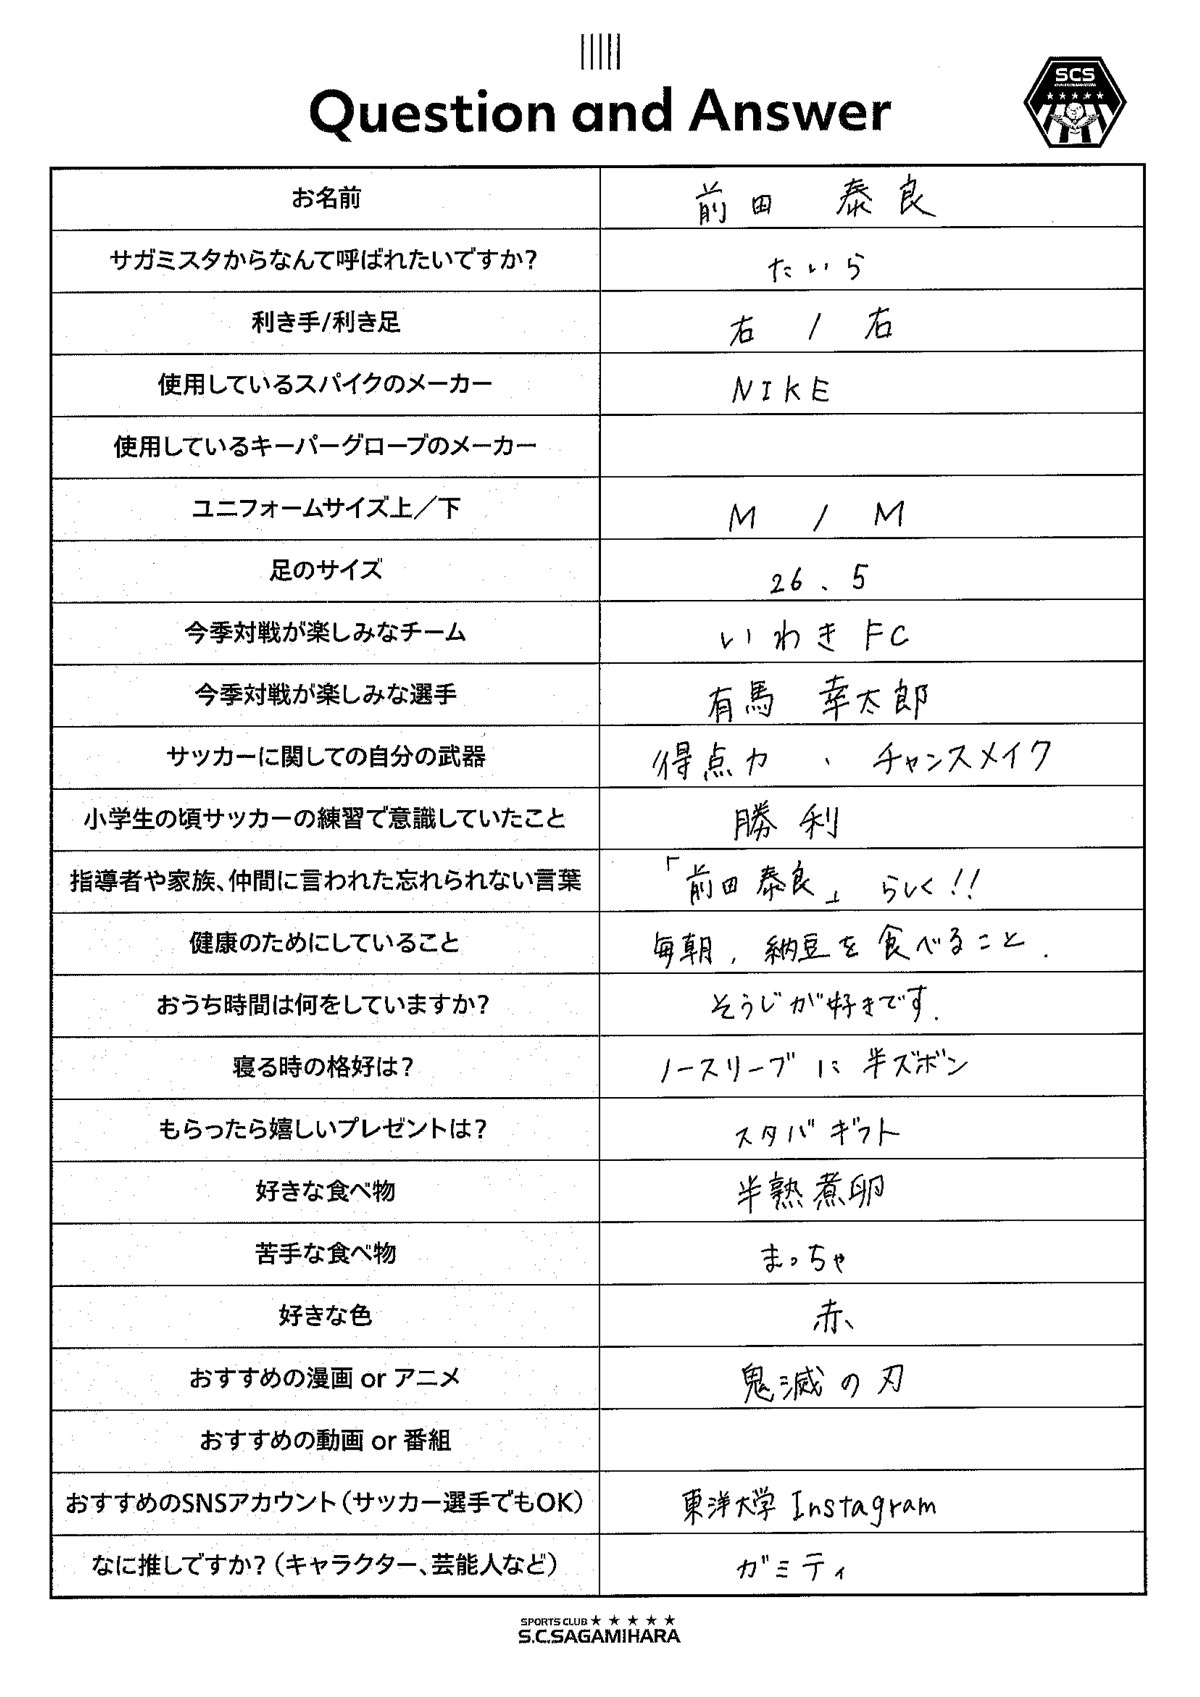 Question and Answer
SCS
お名前 前田 泰良
サガミスタからなんて呼ばれたいですか? たいら
利き手/利き足 右 / 右
使用しているスパイクのメーカー NIKE
使用しているキーパーグローブのメーカー
ユニフォームサイズ上／下 M / M
足のサイズ 26.5
今季対戦が楽しみなチーム いわきFC
今季対戦が楽しみな選手 有馬 幸太郎
サッカーに関しての自分の武器 得点力、チャンスメイク
小学生の頃サッカーの練習で意識していたこと 勝利
指導者や家族、仲間に言われた忘れられない言葉 「前田泰良」らしく!!
健康のためにしていること 毎朝、納豆を食べること.
おうち時間は何をしていますか? そうじが好きです.
寝る時の格好は? ノースリーブに半ズボン
もらったら嬉しいプレゼントは? スタバギフト
好きな食べ物 半熟煮卵
苦手な食べ物 まっちゃ
好きな色 赤、
おすすめの漫画 or アニメ 鬼滅の刃
おすすめの動画 or 番組
おすすめのSNSアカウント（サッカー選手でもOK） 東洋大学 Instagram
なに推しですか?（キャラクター、芸能人など） ガミティ
SPORTS CLUB ★ ★ ★ ★ ★
S.C.SAGAMIHARA